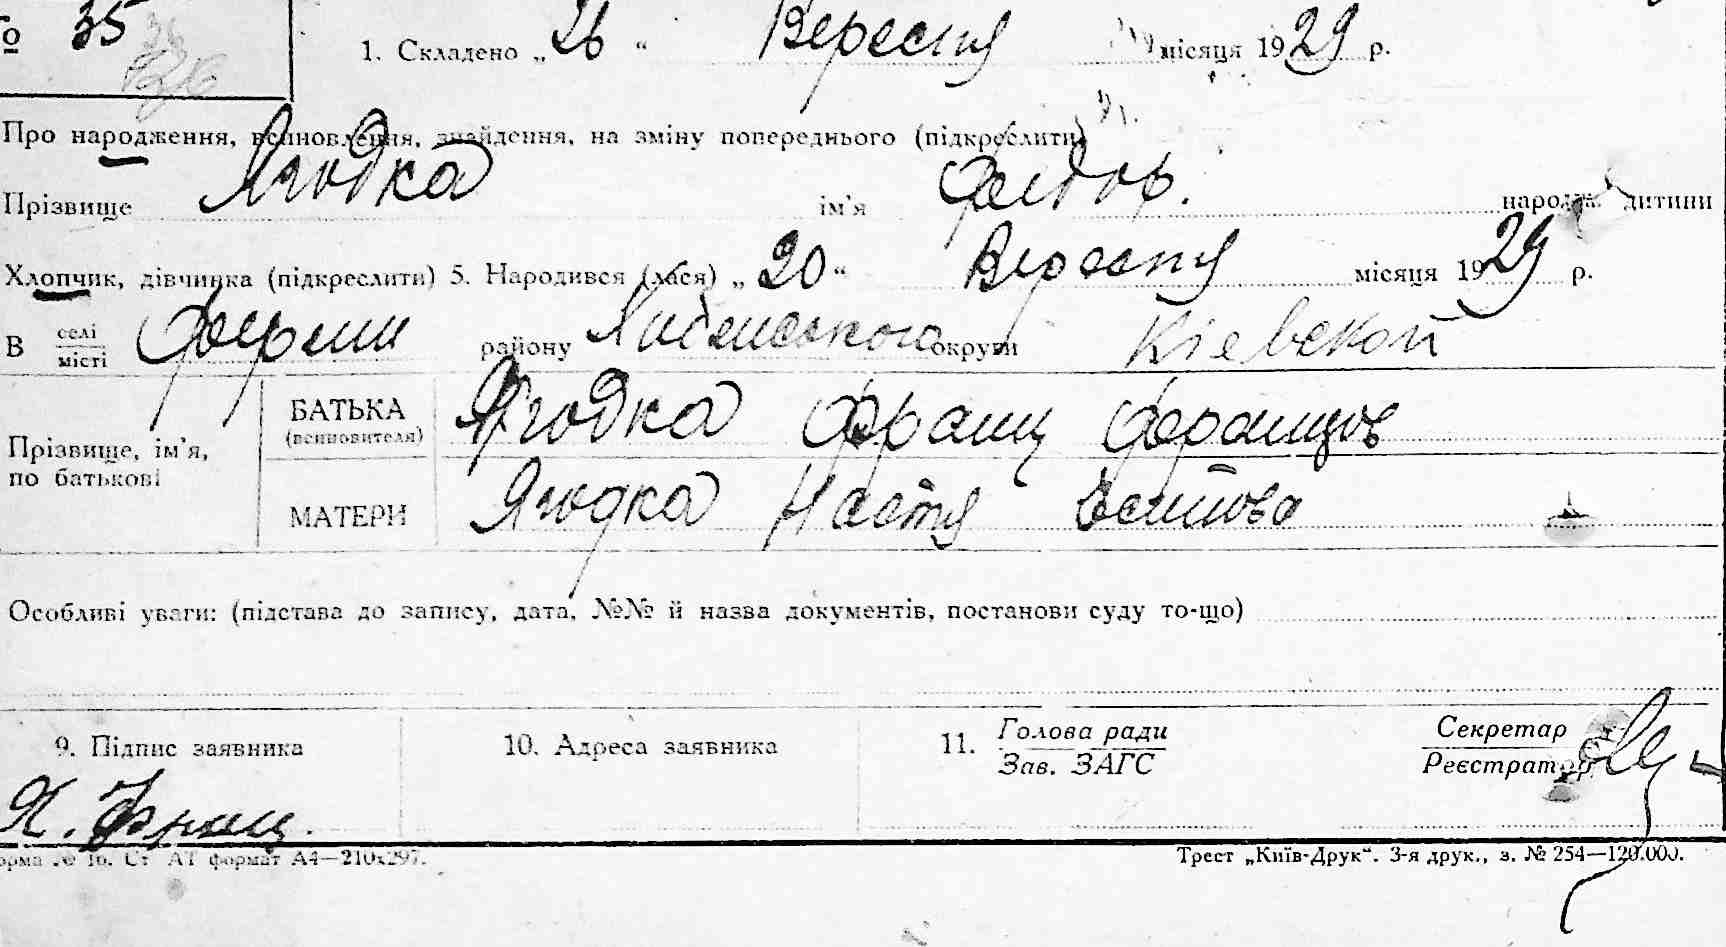 № 35
1. Складено „26“ Вересня місяця 1929 р.
Про народження, всиновлення, знайдення, на зміну попереднього (підкреслити)
Прізвище Ягодка ім'я Федор. народж. дитини
Хлопчик, дівчинка (підкреслити) 5. Народився (лася) „20“ Вересня місяця 1929 р.
В селі місті Ферми району округи Кіевской
Прізвище, ім'я, по батькові
БАТЬКА (всиновителя) Ягодка Франц Францов
МАТЕРИ Ягодка Настя
Особливі уваги: (підстава до запису, дата, №№ й назва документів, постанови суду то-що)
9. Підпис заявника 10. Адреса заявника 11. Голова ради Зав. ЗАГС Секретар Реєстратор
Я. Франц.
орма № 16. Ст АТ формат А4—210х297. Трест „Київ-Друк“. 3-я друк., з. № 254—120.000.